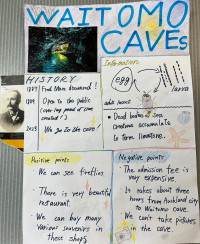 WAITOMO
CAVES
HISTORY
1887 Fred Mace discovered!
1889 Open to the public
2023 We go to the cave!
Information
egg
larva
adult insect
• Dead bodies of sea
creatures accumulate
to form limestone.
Positive points
• We can see fireflies
• There is very beautiful
restaurant.
• We can buy many
various souvenirs in
these shops
Negative points
• The admission fee is
very expensive.
• It takes about three
hours from Auckland city
to Waitomo cave.
• We can't take pictures
in the cave.